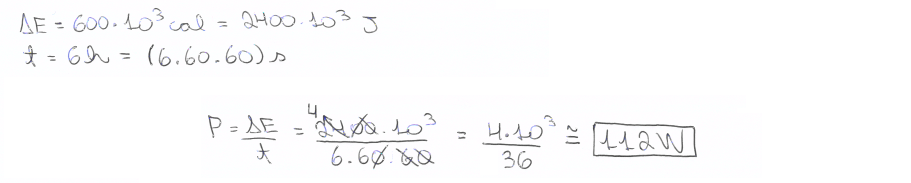 ΔE = 600.10³ cal = 2400.10³ J
t = 6h = (6.60.60) s
P = ΔE/t = 4 2400.10³/6.60.60 = 4.10³/36 ≅ 112W